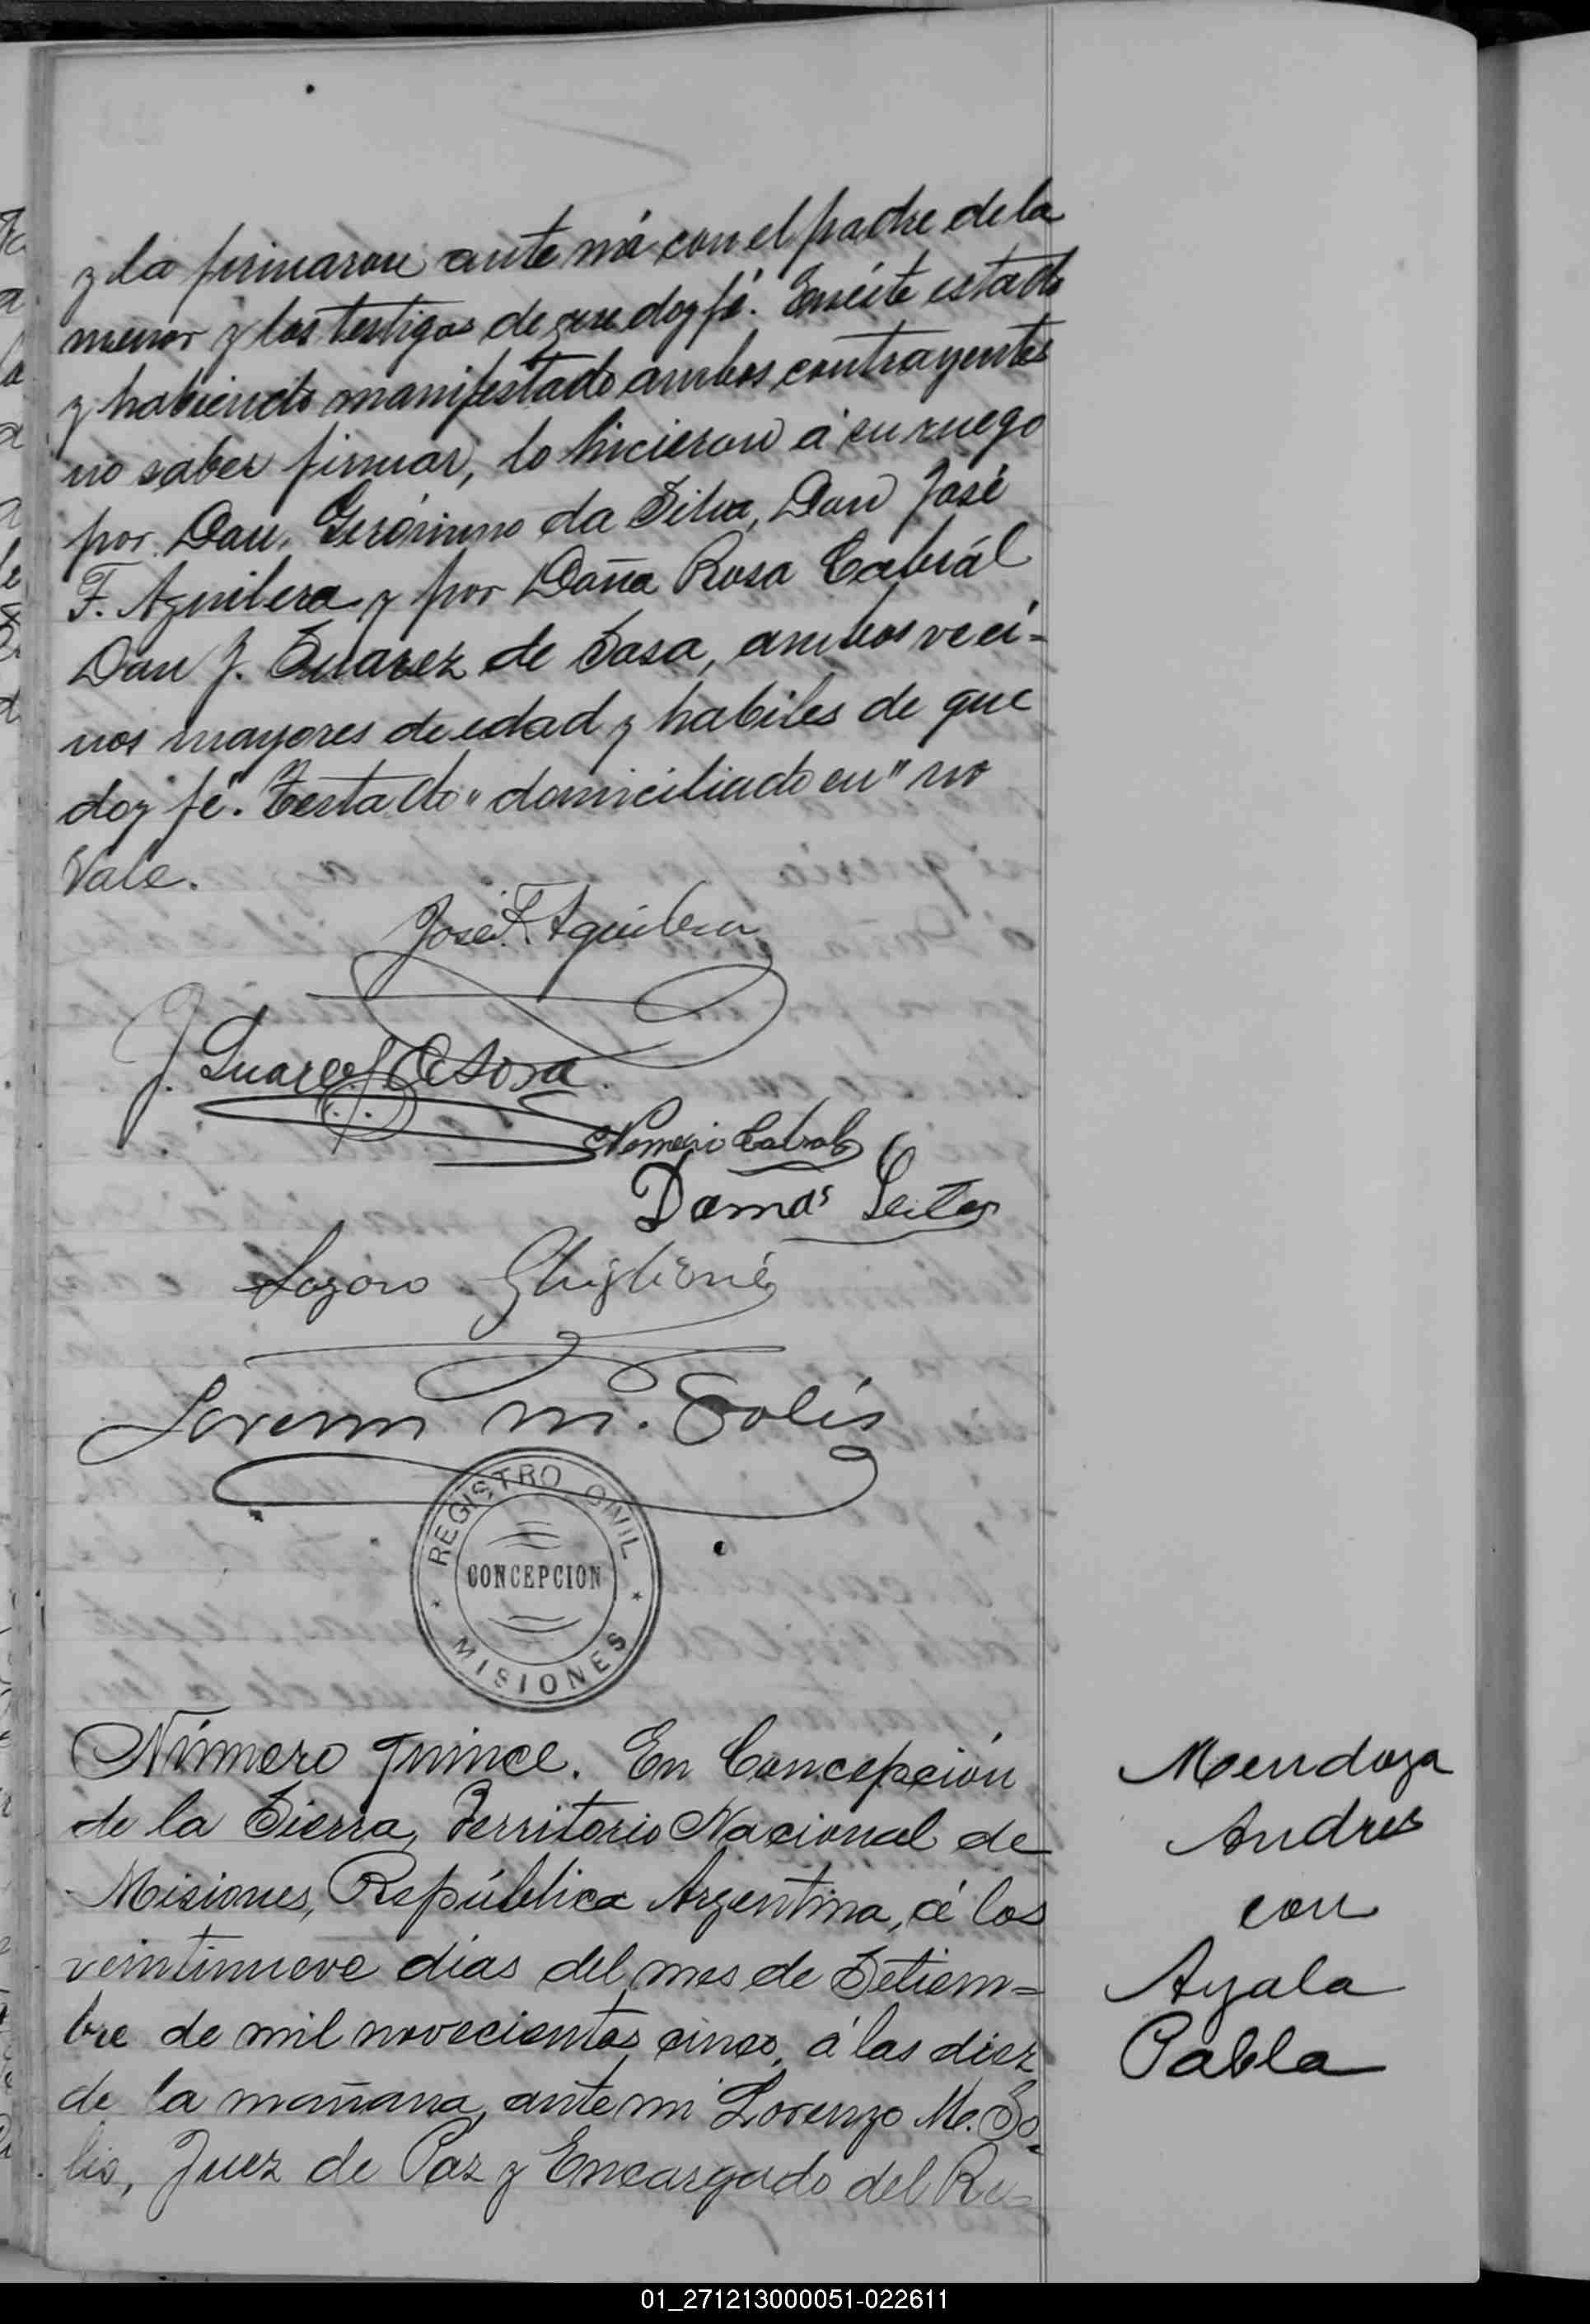 y la firmaron ante mí con el padre de la
menor y los testigos de que doy fé. En éste estado
y habiendo manifestado ambos contrayentes
no saber firmar, lo hicieron á su ruego
por Don Gerónimo da Silva, Don José
F. Aguilera y por Doña Rosa Cabrál
Don J. Suarez de Sosa, ambos veci-
nos mayores de edad y habiles de que
doy fé. Testado "domiciliado en" no
Vale.
José F. Aguilera
J. Suarez de Sosa
Nemesio Cabral
Damas Leites
Lazaro Ghiglione
Lorenzo M. Solis
REGISTRO CIVIL
CONCEPCION
MISIONES
Número quince. En Concepción
de la Sierra, Territorio Nacional de
Misiones, República Argentina, á los
veintinueve dias del mes de Setiem=
bre de mil novecientos cinco, á las diez
de la mañana, ante mi Lorenzo M. So-
lis, Juez de Paz y Encargado del Re=
Mendoza
Andres
con
Ayala
Pabla
01_271213000051-022611